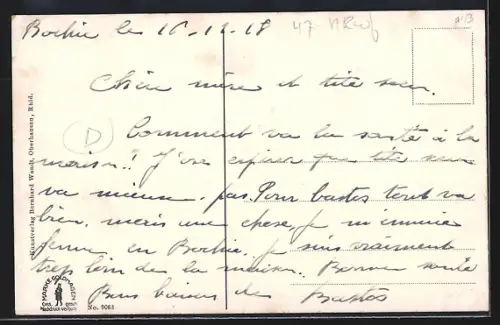 Bochie le 16-12-18
47 NRW
a 13
Chère mère et tite seur.
D
Comment va la santé à la
maison! J'ose espérer que tite seur
va mieux. pas. Pour bastos tout va
bien. mais une chose, je m'ennuie
ferme en Bochie. je suis vraiment
trop loin de la maison. Bonne santé
Bons baisers de Bastos
Kunstverlag Bernhard Wandt, Oberhausen, Rhld.
MARKE GOLDHAGEN
No. 9083